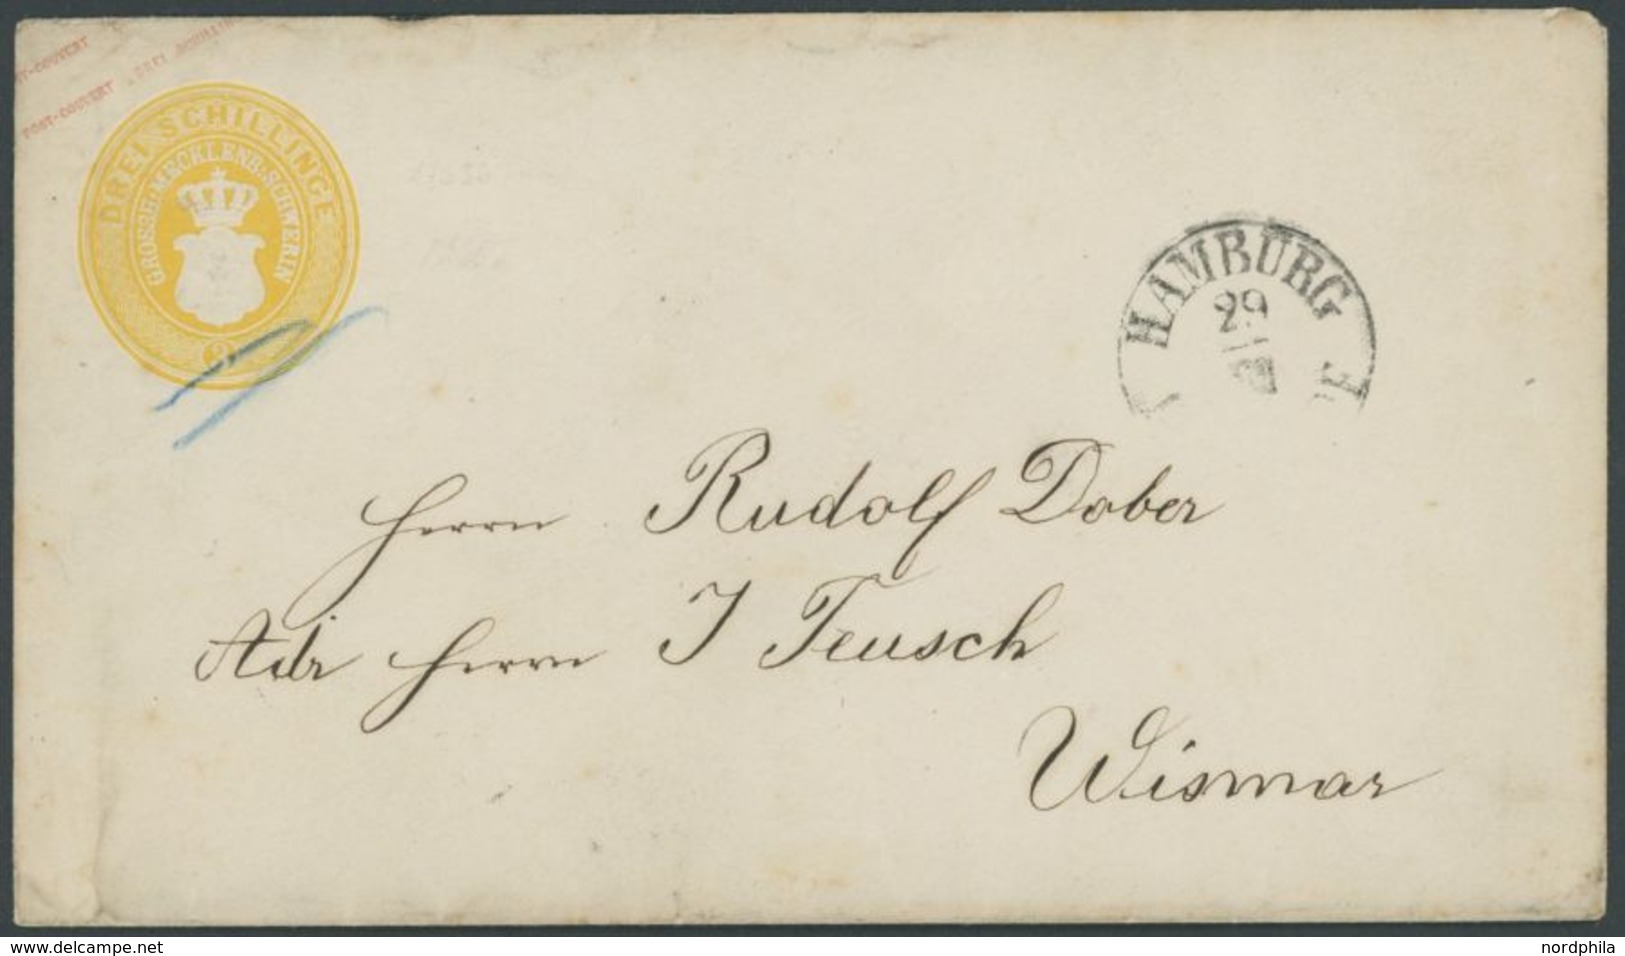 POST-COUVERT
POST-COUVERT DREI SCHILLING
DREI SCHILLINGE
GROSSH. MECKLENB. SCHWERIN
3
HAMBURG
29
Herrn Rudolf Dober
Adr Herrn J Teusch
Wismar
www.delcampe.net
nordphila